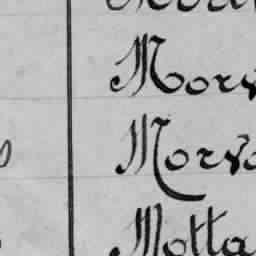 Morv
Morva
Motta